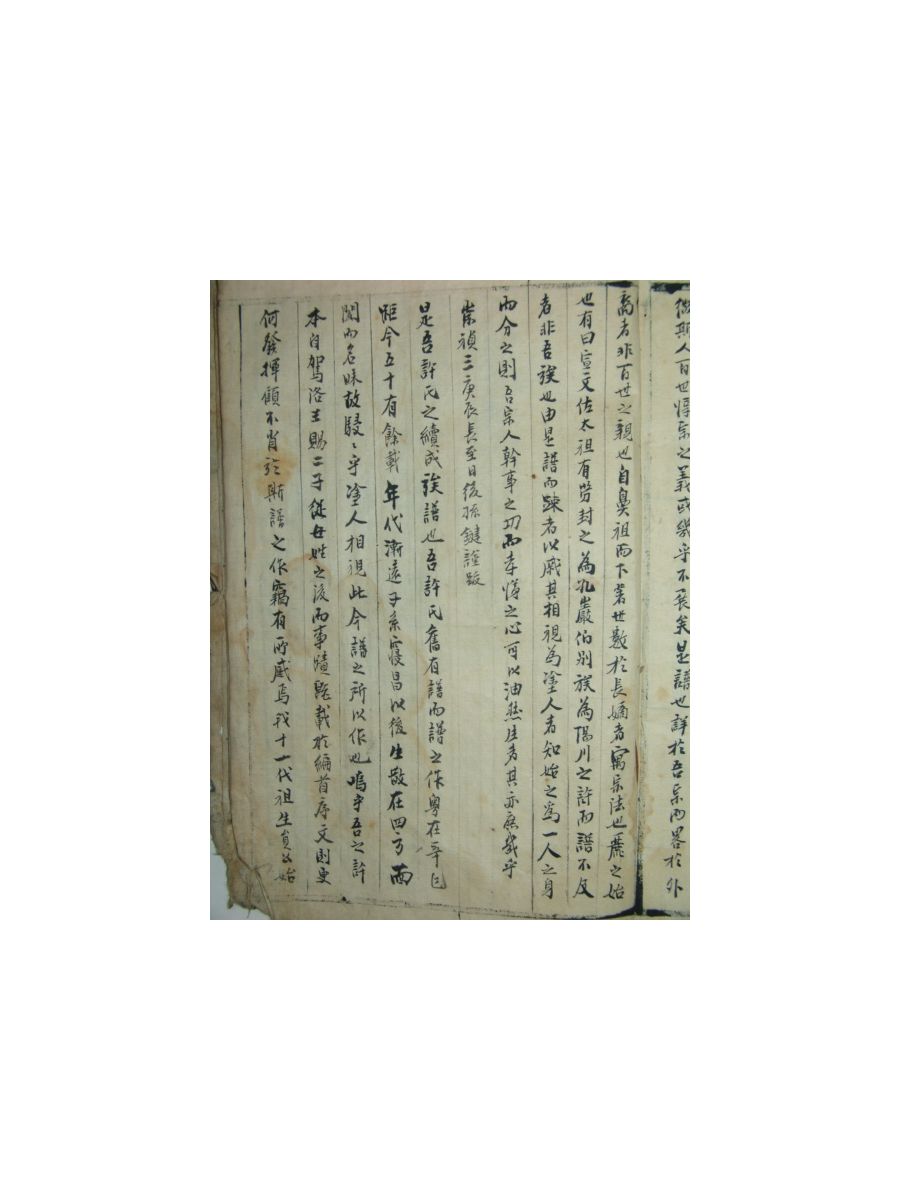 微斯人百世惇宗之義或幾乎不喪矣是譜也詳於吾宗而畧於外
裔者非百世之親也自鼻祖而下著世數於長嫡者寓宗法也麗之始
也有曰宣文佐太祖有勞封之為孔巖伯別族為陽川之許而譜不及
者非吾族也由是譜而踈者以戚其相視為塗人者知始之為一人之身
而分之則吾宗人幹事之功而孝悌之心可以油然生者其亦庶幾乎
崇禎三庚辰長至日後孫鍵謹跋
是吾許氏之續成族譜也吾許氏舊有譜而譜之作粵在辛巳
距今五十有餘載年代漸遠子系寢昌以後生散在四方面
闊而名昧故駸〻乎塗人相視此今譜之所以作也嗚乎吾之許
本自駕洛王賜二子從母姓之後而事蹟既載於編首序文則更
何發揮顧不肖於斯譜之作竊有所感焉我十一代祖生員公始